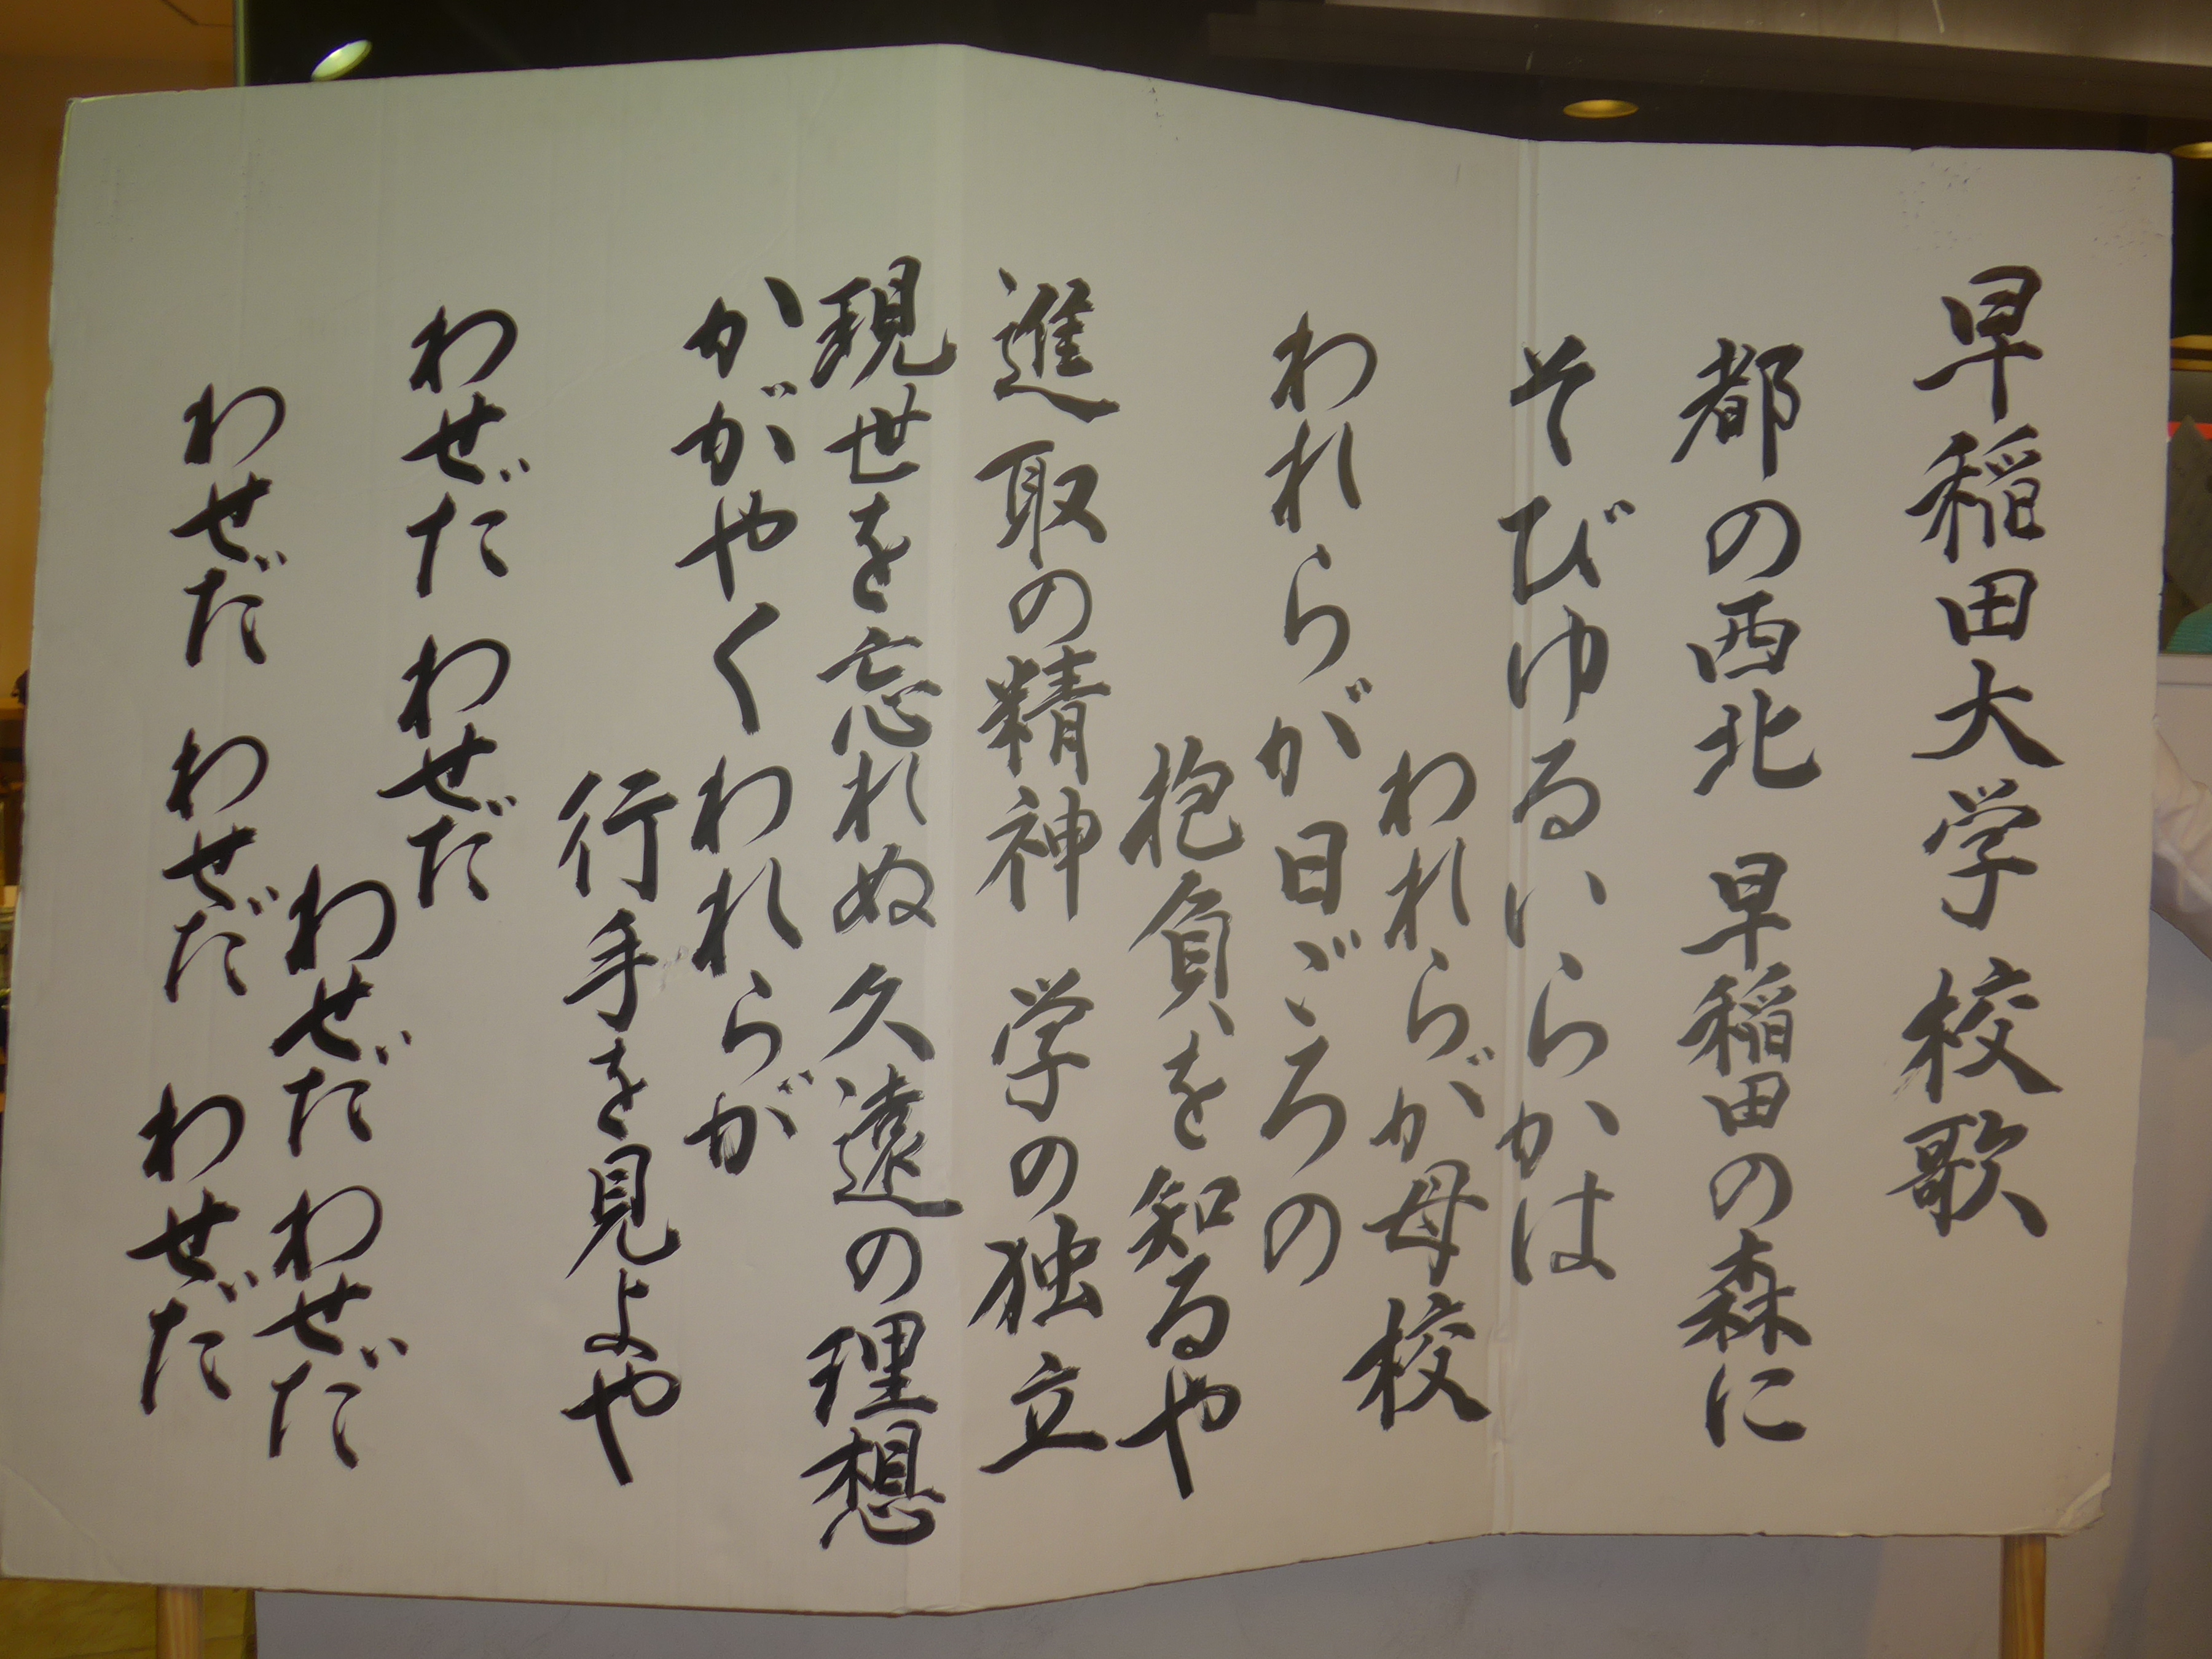 早稲田大学 校歌
都の西北 早稲田の森に
そびゆるいらかは
われらが母校
われらが日ごろの
抱負を知るや
進取の精神 学の独立
現世を忘れぬ久遠の理想
かがやくわれらが
行手を見よや
わせだ わせだ
わせだ わせだ
わせだ わせだ わせだ